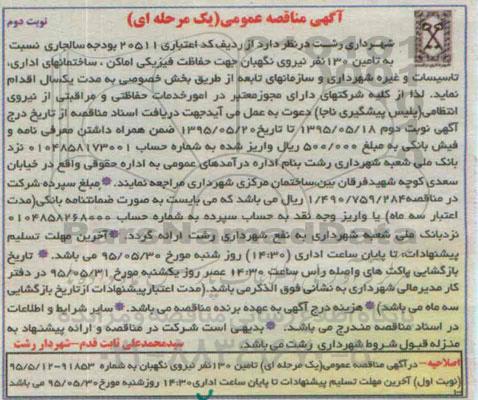 آگهی مناقصه عمومی(یک مرحله ای)
نوبت دوم
شهرداری رشت درنظر دارد از ردیف کد اعتباری ۲۰۵۱۱ بودجه سالجاری نسبت
به تامین ۱۳۰ نفر نیروی نگهبان جهت حفاظت فیزیکی اماکن ، ساختمانهای اداری،
تاسیسات و غیره شهرداری و سازمانهای تابعه از طریق بخش خصوصی به مدت یکسال اقدام
نماید. لذا از کلیه شرکتهای دارای مجوزمعتبر در امورخدمات حفاظتی و مراقبتی از نیروی
انتظامی(پلیس پیشگیری ناجا) دعوت به عمل می آیدجهت دریافت اسناد مناقصه از تاریخ درج
آگهی نوبت دوم ۱۳۹۵/۰۵/۱۸ تا تاریخ ۱۳۹۵/۰۵/۲۰ ضمن همراه داشتن معرفی نامه و
فیش بانکی به مبلغ ۵۰۰/۰۰۰ ریال واریز شده به شماره حساب ۰۱۰۴۸۵۸۱۷۳۰۰۱ نزد
بانک ملی شعبه شهرداری رشت بنام اداره درآمدهای عمومی به اداره حقوقی واقع در خیابان
سعدی کوچه شهیدفرقان بین،ساختمان مرکزی شهرداری مراجعه نمایند. * مبلغ سپرده شرکت
در مناقصه ۱/۴۹۰/۷۵۹/۲۸۴ ریال می باشد که می بایست به صورت ضمانتنامه بانکی(مدت
اعتبار سه ماه) یا واریز وجه نقد به حساب سپرده به شماره حساب ۰۱۰۴۸۵۸۲۶۸۰۰۰
نزدبانک ملی شعبه شهرداری به نفع شهرداری رشت ارائه گردد. * آخرین مهلت تسلیم
پیشنهادات، تا پایان ساعت اداری (۱۴:۳۰) روز شنبه مورخ ۹۵/۰۵/۳۰ می باشد. * تاریخ
بازگشایی پاکت های واصله رأس ساعت ۱۴:۳۰ عصر روز یکشنبه مورخ ۹۵/۰۵/۳۱ در دفتر
کار مدیرمالی شهرداری به نشانی فوق الذکرمی باشد.(مدت اعتبارپیشنهادات ازتاریخ بازگشایی
سه ماه می باشد) * هزینه درج آگهی به عهده برنده مناقصه می باشد. * سایر شرایط و اطلاعات
در اسناد مناقصه مندرج می باشد. * بدیهی است شرکت در مناقصه و ارائه پیشنهاد به
منزله قبول شروط شهرداری رشت می باشد.
سیدمحمدعلی ثابت قدم-شهردار رشت
اصلاحیه- درآگهی مناقصه عمومی(یک مرحله ای) تامین ۱۳۰ نفر نیروی نگهبان به شماره ۹۱۸۵۳-۹۵/۵/۱۲
(نوبت اول) آخرین مهلت تسلیم پیشنهادات تا پایان ساعت اداری۱۴:۳۰ روزشنبه مورخ ۹۵/۰۵/۳۰ می باشد